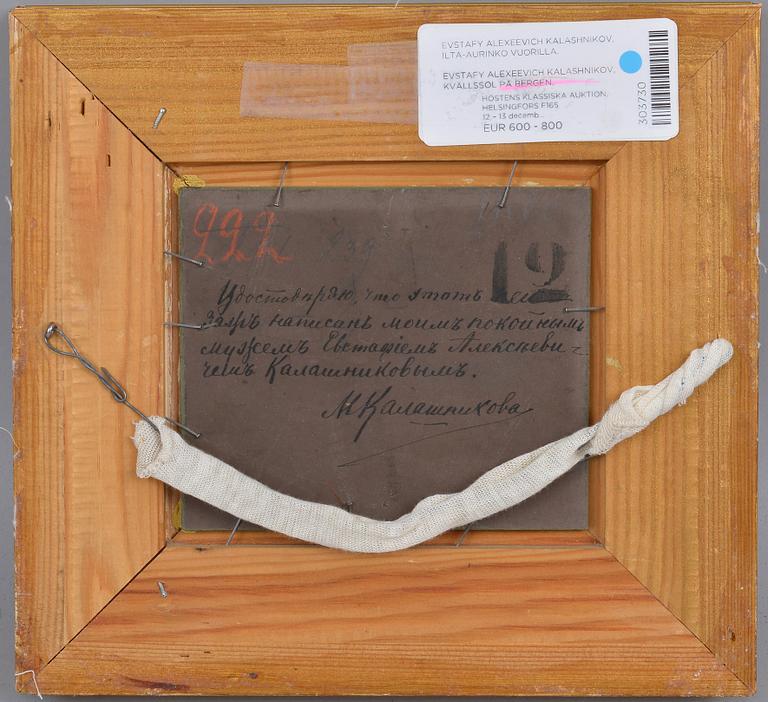 EVSTAFY ALEXEEVICH KALASHNIKOV,
ILTA-AURINKO VUORILLA.
EVSTAFY ALEXEEVICH KALASHNIKOV,
KVÄLLSSOL PÅ BERGEN.
HÖSTENS KLASSISKA AUKTION,
HELSINGFORS F165
12 - 13 decemb...
EUR 600 - 800
303730
292
12
Удостовѣряю, что этотъ
написанъ моимъ покойнымъ
мужемъ Евстафіемъ Алексѣеви-
чемъ Калашниковымъ.
М Калашникова